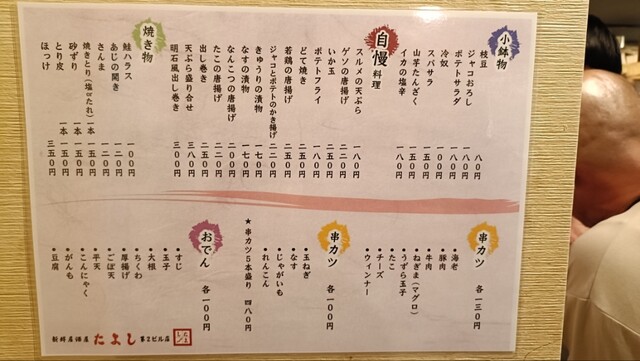 小鉢物
枝豆 八〇円
ジャコおろし 一八〇円
ポテトサラダ 一八〇円
冷奴 一〇〇円
スパサラ 一五〇円
山芋たんざく 一五〇円
イカの塩辛 一八〇円
自慢料理
スルメの天ぷら 一八〇円
ゲソの唐揚げ 二二〇円
いか玉 二五〇円
ポテトフライ 一八〇円
どて焼き 二五〇円
若鶏の唐揚げ 二五〇円
ジャコとポテトのかき揚げ 二二〇円
きゅうりの漬物 一七〇円
なすの漬物 一七〇円
なんこつの唐揚げ 二〇〇円
たこの唐揚げ 二五〇円
出し巻き 二五〇円
天ぷら盛り合せ 三八〇円
明石風出し巻き 三〇〇円
焼き物
鮭ハラス 一〇〇円
あじの開き 一二〇円
さんま 一二〇円
焼きとり(塩orたれ) 一本 一五〇円
砂ずり 一本 一五〇円
とり皮 一本 一五〇円
ほっけ 三五〇円
串カツ 各一三〇円
・海老
・豚肉
・牛肉
・ねぎま(マグロ)
・うずら玉子
・たこ
・チーズ
・ウィンナー
串カツ 各一〇〇円
・玉ねぎ
・なす
・じゃがいも
・れんこん
★串カツ5本盛り 四八〇円
おでん 各一〇〇円
・すじ
・玉子
・大根
・ちくわ
・厚揚げ
・ごぼ天
・平天
・こんにゃく
・がんも
・豆腐
新時居酒屋 たよし 第2ビル店